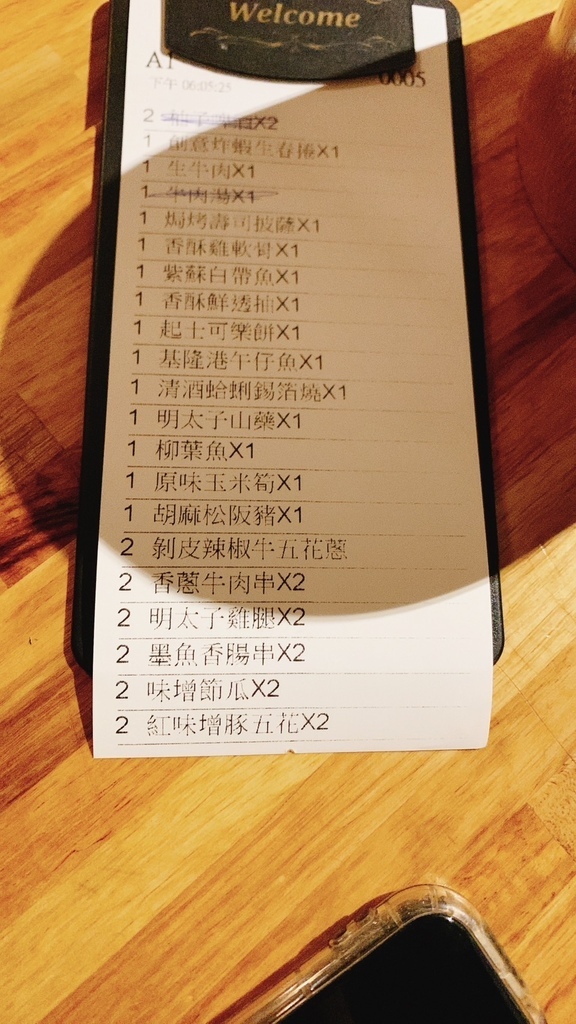 Welcome
A1 0005
下午 06:05:25
2 柚子啤酒X2
1 創意炸蝦生春捲X1
1 生牛肉X1
1 牛肉湯X1
1 焗烤壽司披薩X1
1 香酥雞軟骨X1
1 紫蘇白帶魚X1
1 香酥鮮透抽X1
1 起士可樂餅X1
1 基隆港午仔魚X1
1 清酒蛤蜊錫箔燒X1
1 明太子山藥X1
1 柳葉魚X1
1 原味玉米筍X1
1 胡麻松阪豬X1
2 剝皮辣椒牛五花蔥
2 香蔥牛肉串X2
2 明太子雞腿X2
2 墨魚香腸串X2
2 味增節瓜X2
2 紅味增豚五花X2